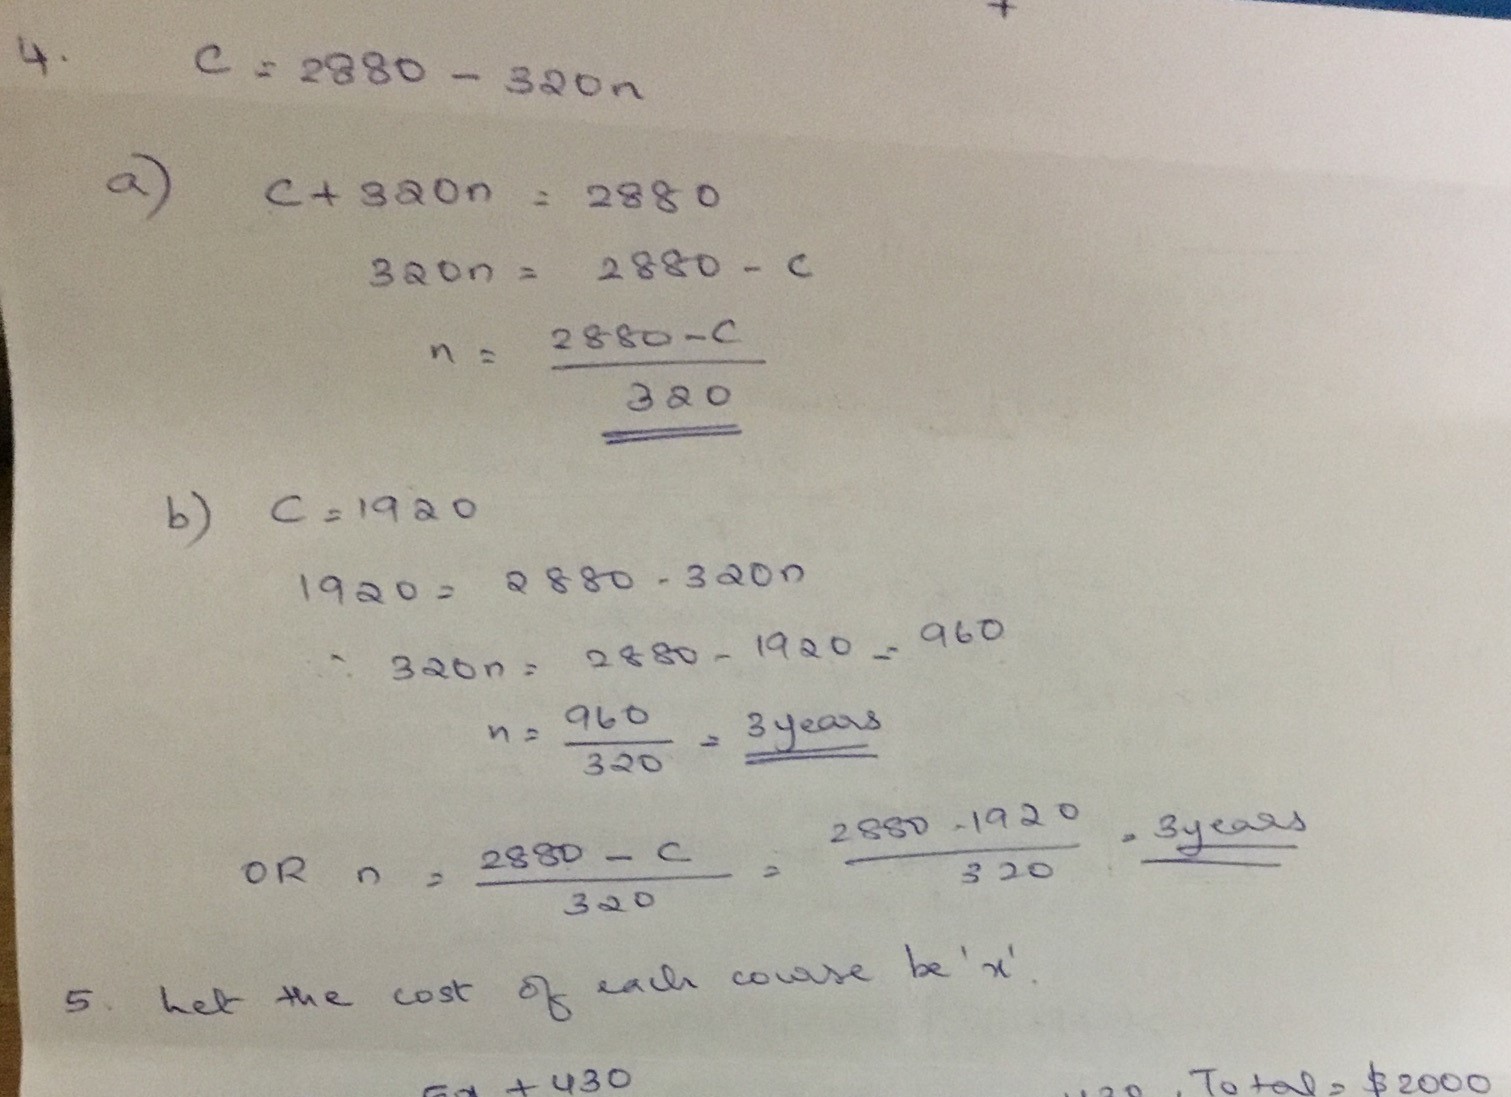 4. C = 2880 - 320n
a) C + 320n = 2880
320n = 2880 - C
n = 2880 - C
320
b) C = 1920
1920 = 2880 - 320n
∴ 320n = 2880 - 1920 = 960
n = 960 = 3 years
320
OR n = 2880 - C = 2880 - 1920 = 3 years
320 320
5. Let the cost of each course be 'x'.
5x + 430 Total = $2000